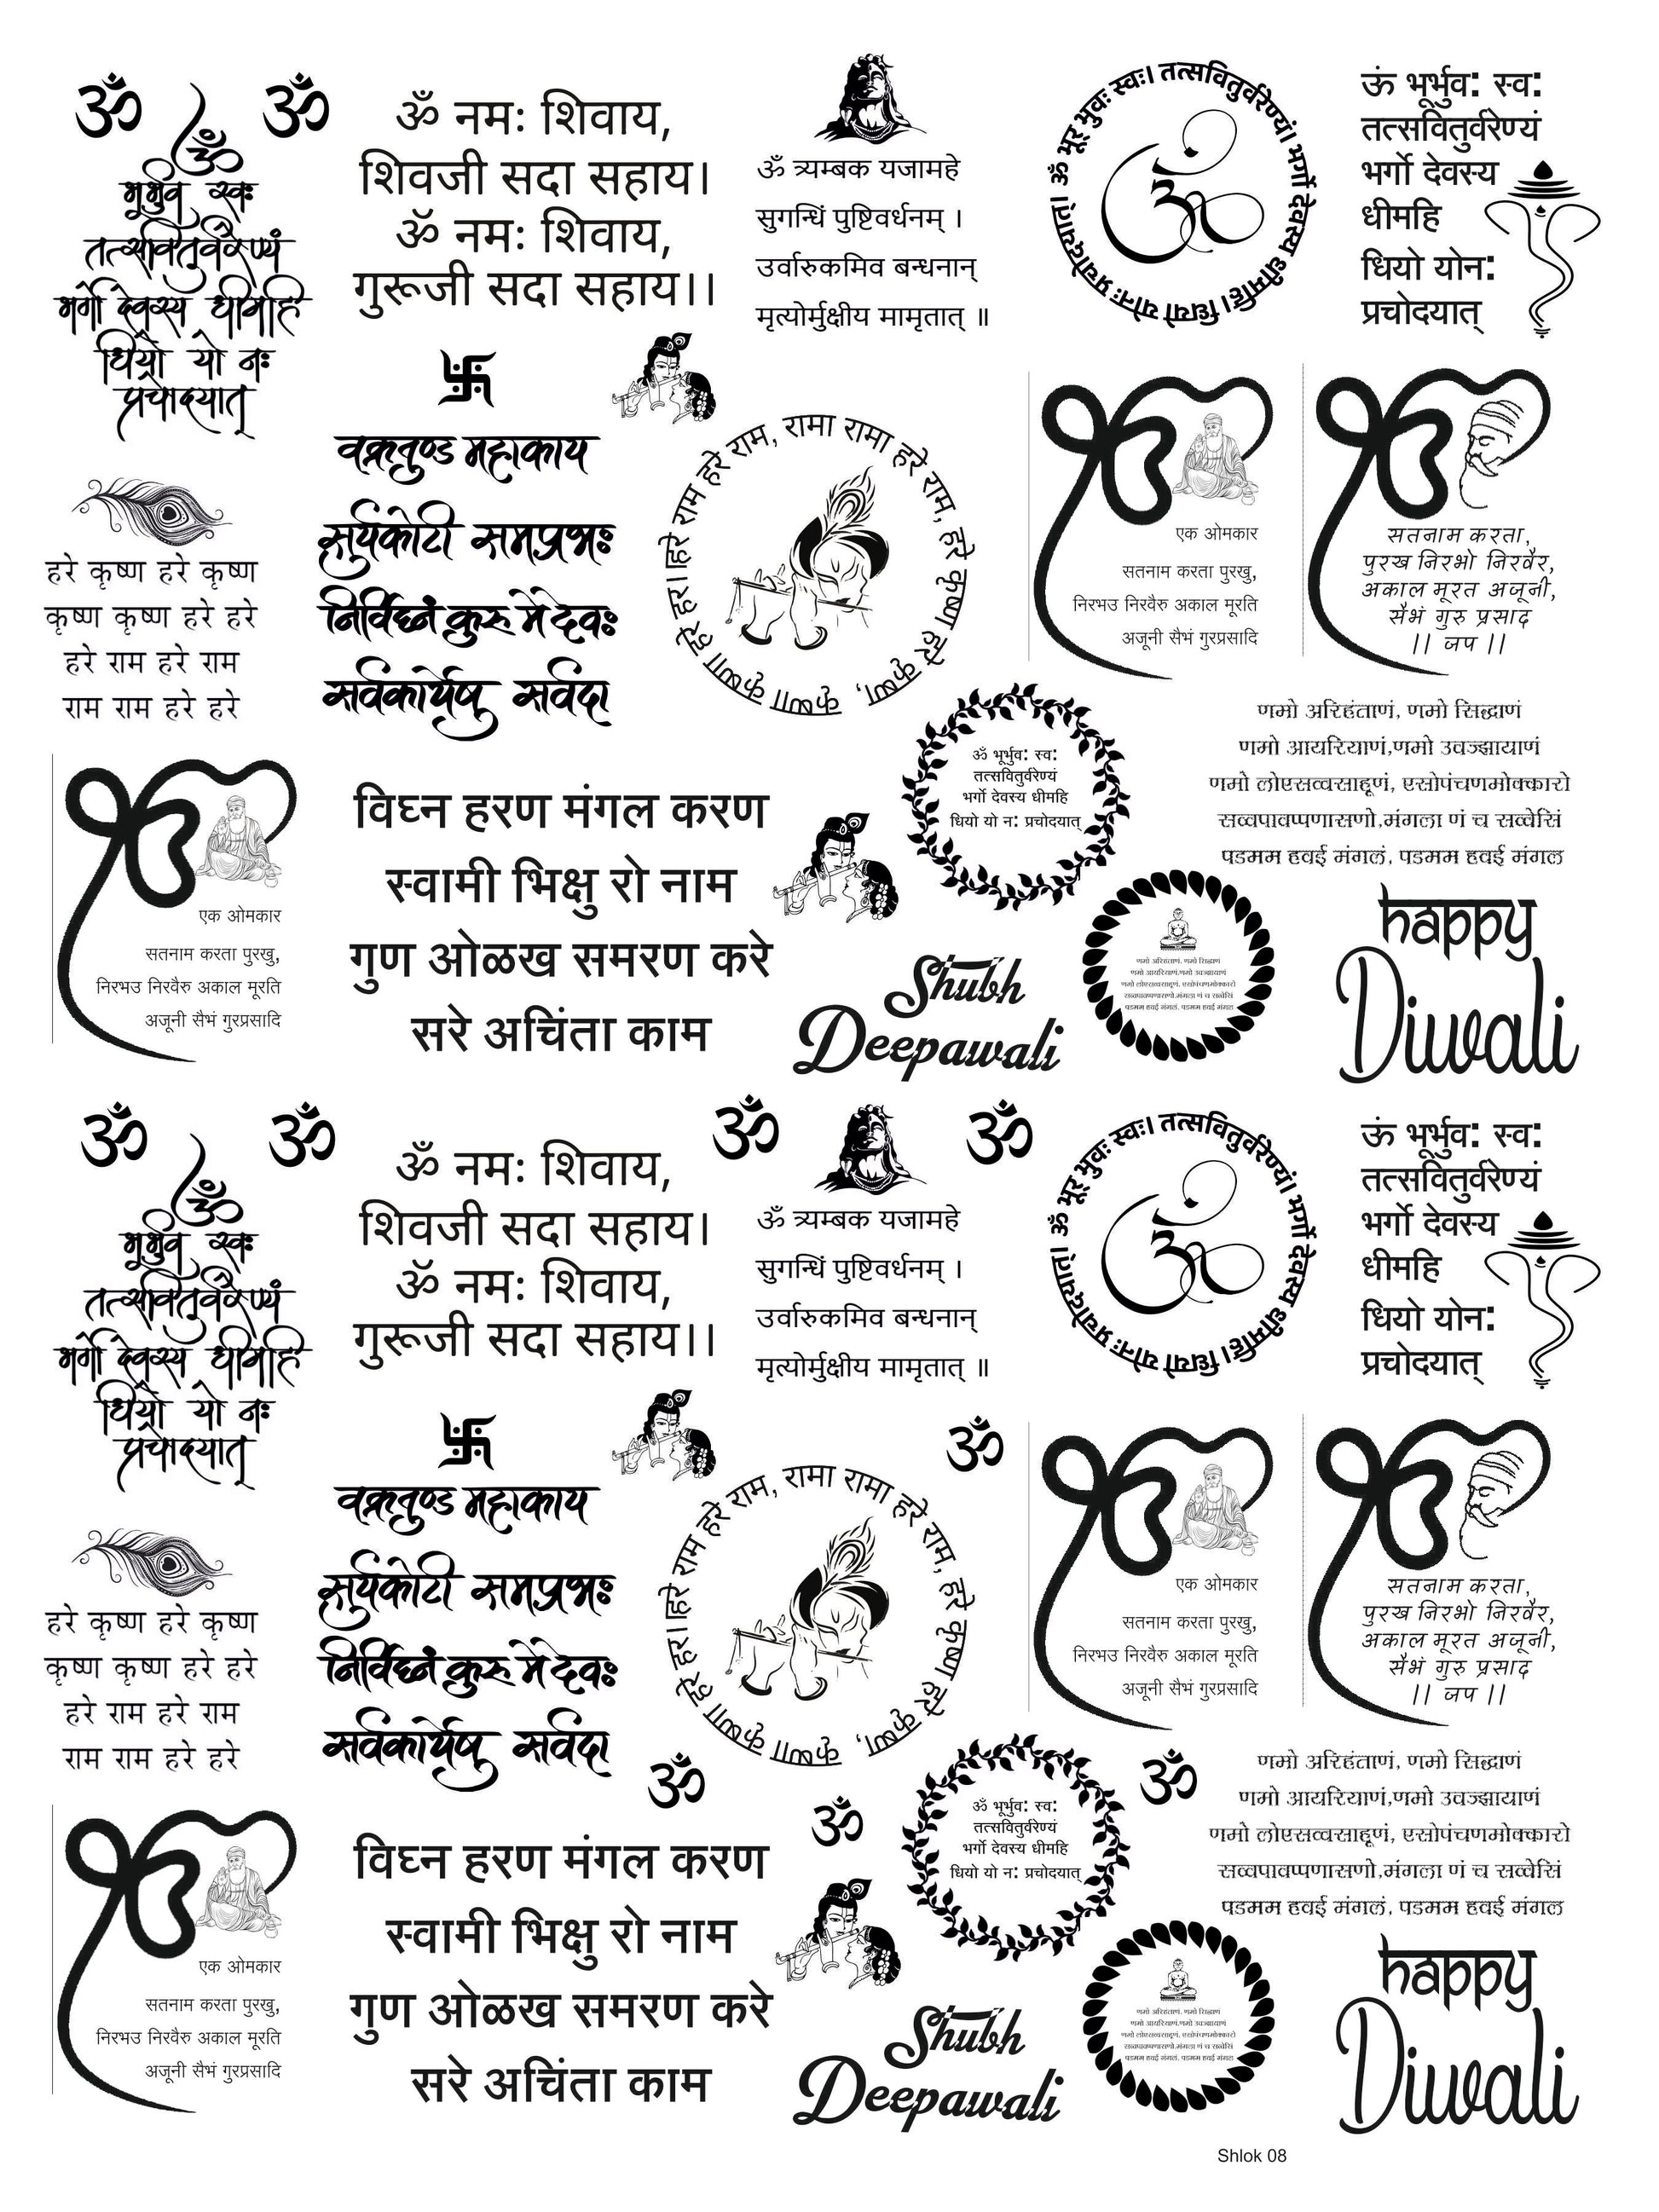 ॐ
ॐ
ॐ
भूर्भुव स्वः
तत्सवितुर्वरेण्यं
भर्गो देवस्य धीमहि
धियो यो नः
प्रचोदयात्
ॐ नमः शिवाय,
शिवजी सदा सहाय।
ॐ नमः शिवाय,
गुरूजी सदा सहाय।।
ॐ त्र्यम्बक यजामहे
सुगन्धिं पुष्टिवर्धनम् ।
उर्वारुकमिव बन्धनान्
मृत्योर्मुक्षीय मामृतात् ॥
ॐ भूर भुवः स्वः। तत्सवितुर्वरेण्यं। भर्गो देवस्य धीमहि। धियो योनः प्रचोदयात्।
ॐ
ऊं भूर्भुव: स्व:
तत्सवितुर्वरेण्यं
भर्गो देवस्य
धीमहि
धियो योन:
प्रचोदयात्
हरे कृष्ण हरे कृष्ण
कृष्ण कृष्ण हरे हरे
हरे राम हरे राम
राम राम हरे हरे
वक्रतुण्ड महाकाय
सुर्यकोटी समप्रभः
निर्विघ्नं कुरु मे देवः
सर्वकार्येषु सर्वदा
हरे राम हरे राम, रामा रामा हरे राम, हरे कृष्ण हरे कृष्ण, कृष्णा कृष्णा हरे हरा।
एक ओमकार
सतनाम करता पुरखु,
निरभउ निरवैरु अकाल मूरति
अजूनी सैभं गुरप्रसादि
सतनाम करता,
पुरख निरभो निरवैर,
अकाल मूरत अजूनी,
सैभं गुरु प्रसाद
।। जप ।।
एक ओमकार
सतनाम करता पुरखु,
निरभउ निरवैरु अकाल मूरति
अजूनी सैभं गुरप्रसादि
विघ्न हरण मंगल करण
स्वामी भिक्षु रो नाम
गुण ओळख समरण करे
सरे अचिंता काम
ॐ भूर्भुव: स्व:
तत्सवितुर्वरेण्यं
भर्गो देवस्य धीमहि
धियो यो न: प्रचोदयात्
णमो अरिहंताणं, णमो सिद्धाणं
णमो आयरियाणं,णमो उवज्झायाणं
णमो लोएसव्वसाहूणं, एसोपंचणमोक्कारो
सव्वपावप्पणासणो,मंगला णं च सव्वेसिं
पडमम हवई मंगलं, पडमम हवई मंगल
Shubh
Deepawali
णमो अरिहाणं, णमो सिद्धाणं
णमो आयरियाणं,णमो उवज्झायाणं
णमो लोएसव्वसाहूणं, एसोपंचणमोक्कारो
सव्वपावप्पणासणो,मंगला णं च सव्वेसिं
पडमम हवई मंगलं, पडमम हवई मंगल
happy
Diwali
ॐ
ॐ
ॐ
ॐ
ॐ
भूर्भुव स्वः
तत्सवितुर्वरेण्यं
भर्गो देवस्य धीमहि
धियो यो नः
प्रचोदयात्
ॐ नमः शिवाय,
शिवजी सदा सहाय।
ॐ नमः शिवाय,
गुरूजी सदा सहाय।।
ॐ त्र्यम्बक यजामहे
सुगन्धिं पुष्टिवर्धनम् ।
उर्वारुकमिव बन्धनान्
मृत्योर्मुक्षीय मामृतात् ॥
ॐ भूर भुवः स्वः। तत्सवितुर्वरेण्यं। भर्गो देवस्य धीमहि। धियो योनः प्रचोदयात्।
ॐ
ऊं भूर्भुव: स्व:
तत्सवितुर्वरेण्यं
भर्गो देवस्य
धीमहि
धियो योन:
प्रचोदयात्
हरे कृष्ण हरे कृष्ण
कृष्ण कृष्ण हरे हरे
हरे राम हरे राम
राम राम हरे हरे
वक्रतुण्ड महाकाय
सुर्यकोटी समप्रभः
निर्विघ्नं कुरु मे देवः
सर्वकार्येषु सर्वदा
हरे राम हरे राम, रामा रामा हरे राम, हरे कृष्ण हरे कृष्ण, कृष्णा कृष्णा हरे हरा।
ॐ
एक ओमकार
सतनाम करता पुरखु,
निरभउ निरवैरु अकाल मूरति
अजूनी सैभं गुरप्रसादि
सतनाम करता,
पुरख निरभो निरवैर,
अकाल मूरत अजूनी,
सैभं गुरु प्रसाद
।। जप ।।
ॐ
ॐ
ॐ
एक ओमकार
सतनाम करता पुरखु,
निरभउ निरवैरु अकाल मूरति
अजूनी सैभं गुरप्रसादि
विघ्न हरण मंगल करण
स्वामी भिक्षु रो नाम
गुण ओळख समरण करे
सरे अचिंता काम
ॐ भूर्भुव: स्व:
तत्सवितुर्वरेण्यं
भर्गो देवस्य धीमहि
धियो यो न: प्रचोदयात्
णमो अरिहंताणं, णमो सिद्धाणं
णमो आयरियाणं,णमो उवज्झायाणं
णमो लोएसव्वसाहूणं, एसोपंचणमोक्कारो
सव्वपावप्पणासणो,मंगला णं च सव्वेसिं
पडमम हवई मंगलं, पडमम हवई मंगल
Shubh
Deepawali
णमो अरिहाणं, णमो सिद्धाणं
णमो आयरियाणं,णमो उवज्झायाणं
णमो लोएसव्वसाहूणं, एसोपंचणमोक्कारो
सव्वपावप्पणासणो,मंगला णं च सव्वेसिं
पडमम हवई मंगलं, पडमम हवई मंगल
happy
Diwali
Shlok 08